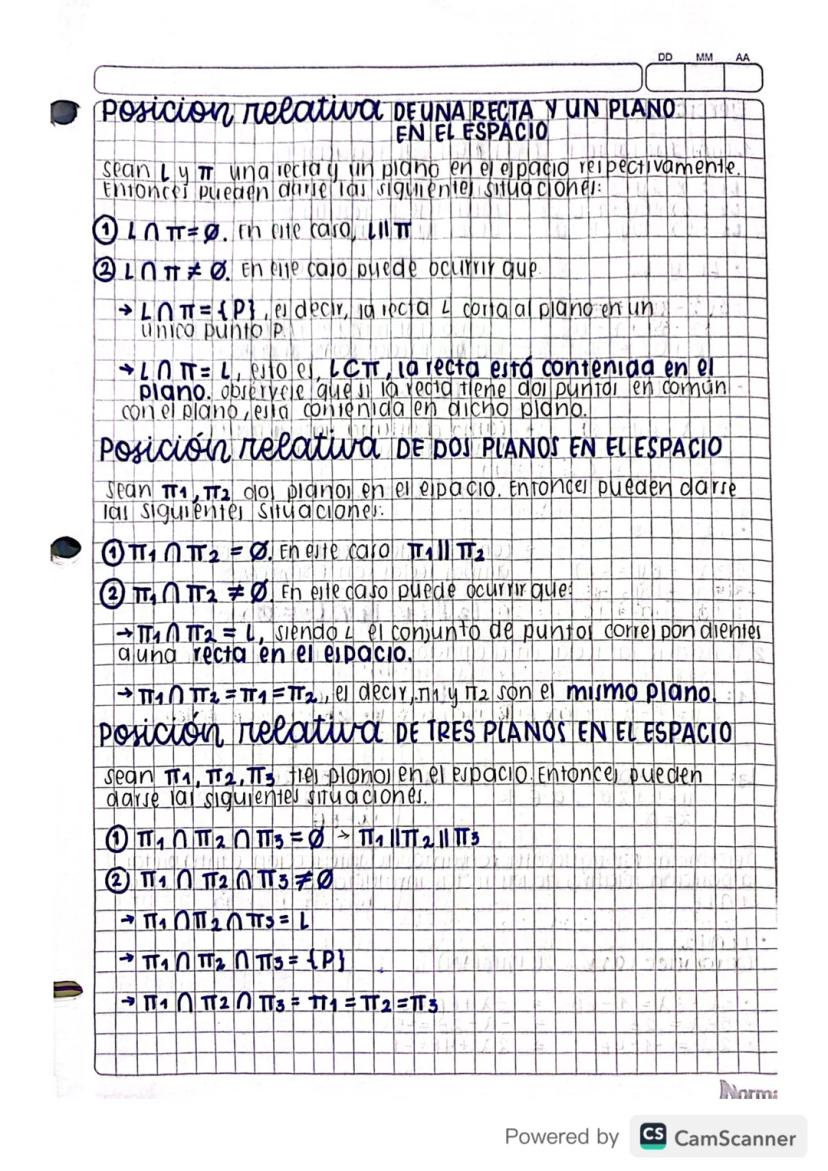 DD MM AA
Posicion relativa DE UNA RECTA Y UN PLANO
EN EL ESPACIO
Sean L y π una recta y un plano en el espacio respectivamente.
Entonces pueden darse las siguientes situaciones:
① L ∩ π = ∅. En este caso, L || π
② L ∩ π ≠ ∅. En este caso puede ocurrir que
→ L ∩ π = {P}, es decir, la recta L corta al plano en un
único punto P.
→ L ∩ π = L, esto es, L ⊂ π, la recta está contenida en el
plano. obsérvese que si la recta tiene dos puntos en común
con el plano, está contenida en dicho plano.
Posición relativa DE DOS PLANOS EN EL ESPACIO
Sean π1, π2 dos planos en el espacio. Entonces pueden darse
las siguientes situaciones:
① π1 ∩ π2 = ∅. En este caso π1 || π2
② π1 ∩ π2 ≠ ∅. En este caso puede ocurrir que:
→ π1 ∩ π2 = L, siendo L el conjunto de puntos correspondientes
a una recta en el espacio.
→ π1 ∩ π2 = π1 = π2, es decir, π1 y π2 son el mismo plano.
Posición relativa DE TRES PLANOS EN EL ESPACIO
Sean π1, π2, π3 tres planos en el espacio. Entonces pueden
darse las siguientes situaciones.
① π1 ∩ π2 ∩ π3 = ∅ → π1 || π2 || π3
② π1 ∩ π2 ∩ π3 ≠ ∅
→ π1 ∩ π2 ∩ π3 = L
→ π1 ∩ π2 ∩ π3 = {P}
→ π1 ∩ π2 ∩ π3 = π1 = π2 = π3
Powered by CS CamScanner